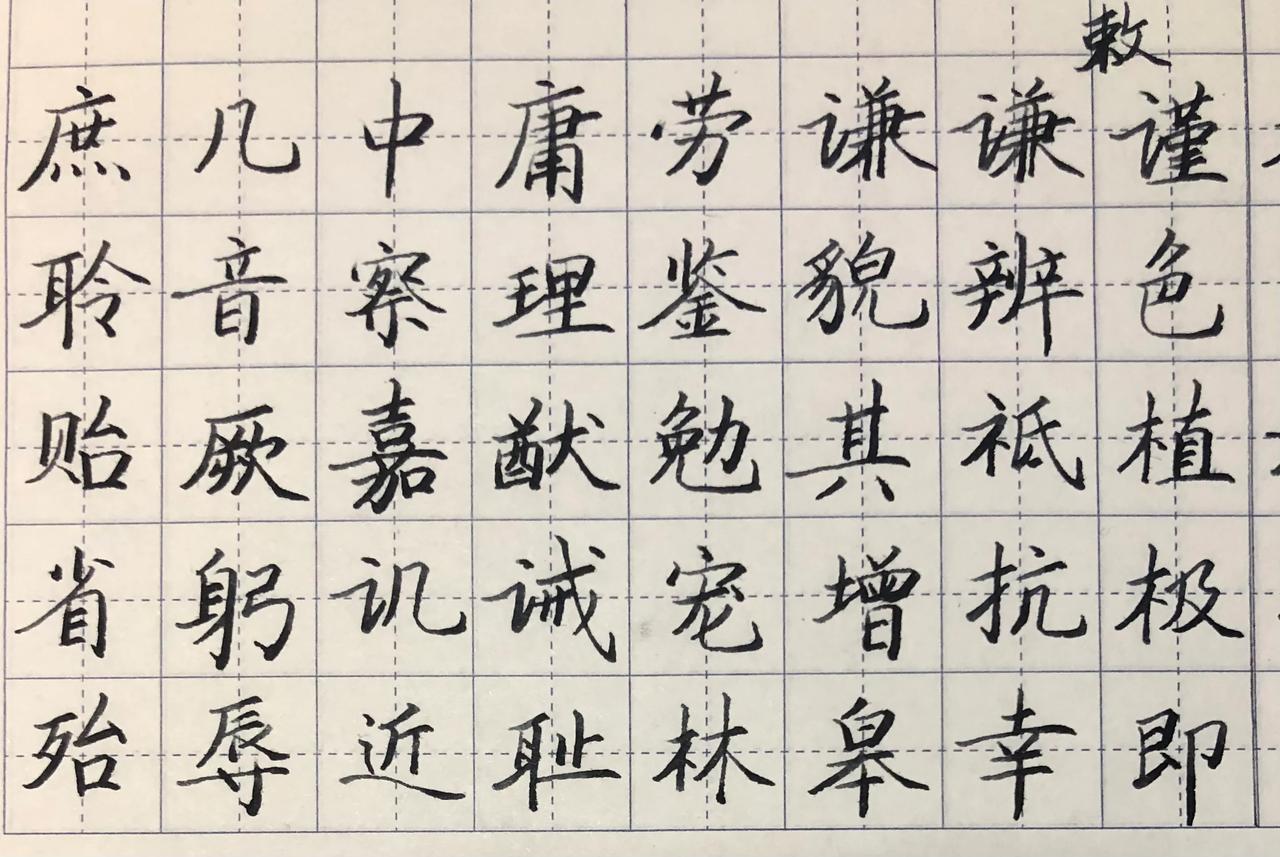 敕
庶几中庸劳谦谦谨
聆音察理鉴貌辨色
贻厥嘉猷勉其祗植
省躬讥诫宠增抗极
殆辱近耻林皋幸即